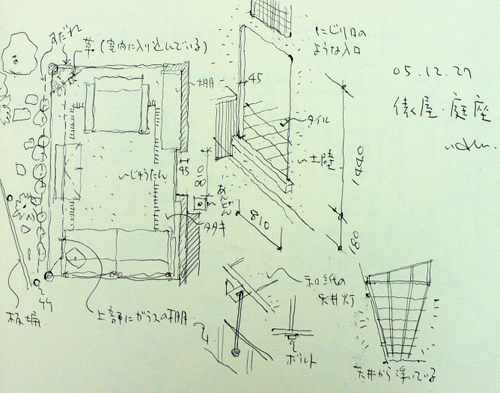 すだれ
草(室内に入り込んでいる)
棚
にじり口の
ような入口
45
05.12.27
俵屋・庭座
タイル
じゅうたん
45
810
あんどん
土壁
1440
タタキ
810
180
和紙の
天井灯
44
板塀
上部にガラスの棚
ボルト
天井から浮いている